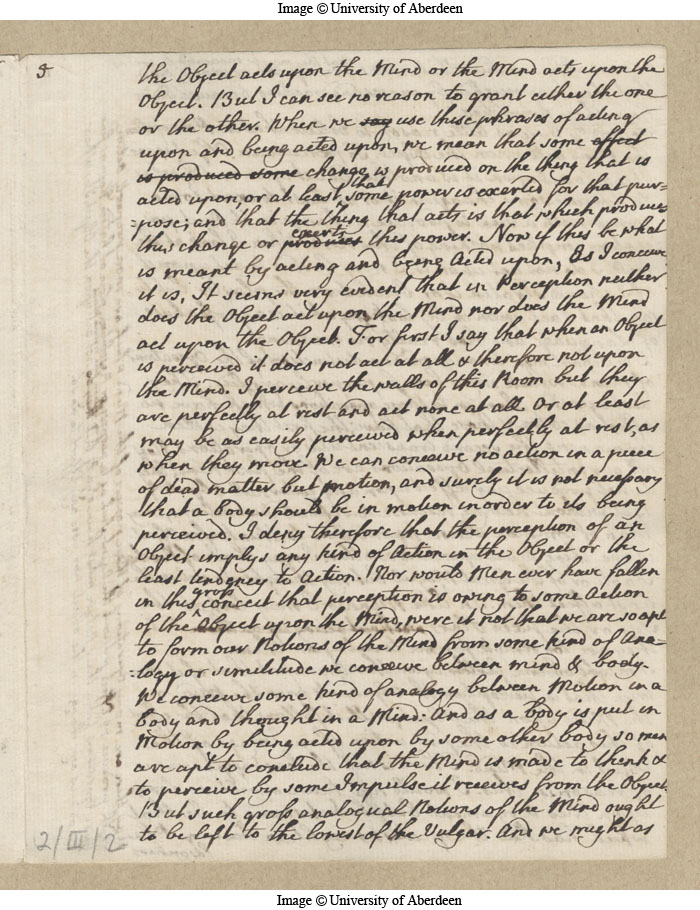 Image © University of Aberdeen
3
the Object acts upon the Mind or the Mind acts upon the
Object. But I can see no reason to grant either the one
or the other. When we say use these phrases of acting
upon and being acted upon, we mean that some effect
is produced some change is produced on the thing that is
acted upon, or at least that some power is exerted for that pur-
=pose; and that the thing that acts is that which produces
this change or produces exerts this power. Now if this be what
is meant by acting and being Acted upon, as I conceive
it is, It seems very evident that in Perception neither
does the Object act upon the Mind nor does the Mind
act upon the Object. For first I say that when an Object
is perceived it does not act at all & therefore not upon
the Mind. I perceive the walls of this Room but they
are perfectly at rest and act none at all. Or at least
may be as easily perceived when perfectly at rest, as
when they move. We can conceive no action in a piece
of dead matter but motion, and surely it is not necessary
that a body should be in motion in order to its being
perceived. I deny therefore that the perception of an
Object implys any kind of Action in the Object or the
least tendency to Action. Nor would Men ever have fallen
in this gross conceit that perception is owing to some Action
of the Object upon the Mind, were it not that we are so apt
to form our Notions of the Mind from some kind of Ana-
=logy or similitude we conceive between mind & body.
We conceive some kind of analogy between Motion in a
body and thought in a Mind: And as a body is put in
Motion by being acted upon by some other body so men
are apt to conclude that the Mind is made to think &
to perceive by some Impulse it receives from the Object.
But such gross analogual Notions of the Mind ought
to be left to the lowest of the Vulgar. And we might as
2/III/2
Image © University of Aberdeen